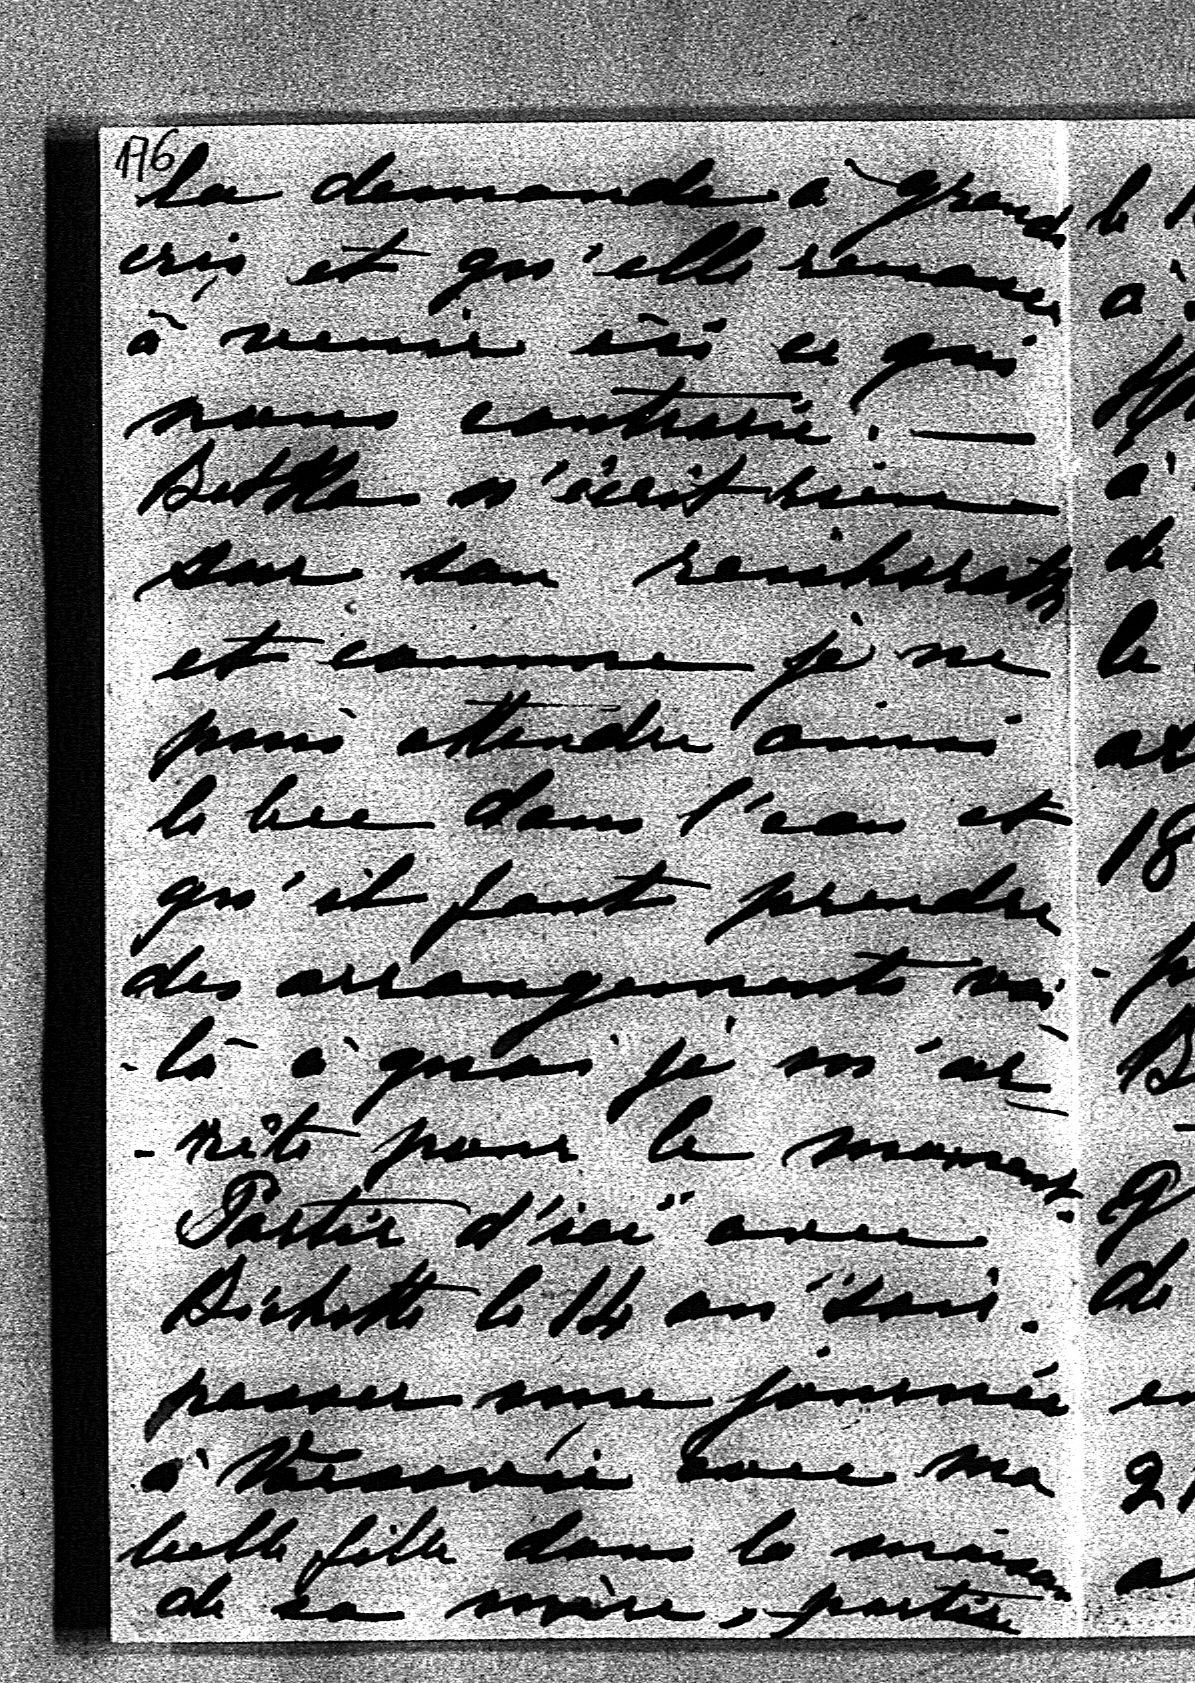 176
la demande à grands le
cris et qu'elle renonce à
à venir ici ce qui
nous contrarie. —
Bertha n'écrit rien à
sur son de
et comme je ne le
puis attendre ainsi
le bec dans l'eau et 18
qu'il faut prendre
des arrangements voi
-là à quoi je m'ar
-rête pour le moment.
Partir d'ici avec
Bichette le 14 au soir. de
passer une journée
à Varsovie avec ma 21
belle fille dans la maison
de sa mère, partir